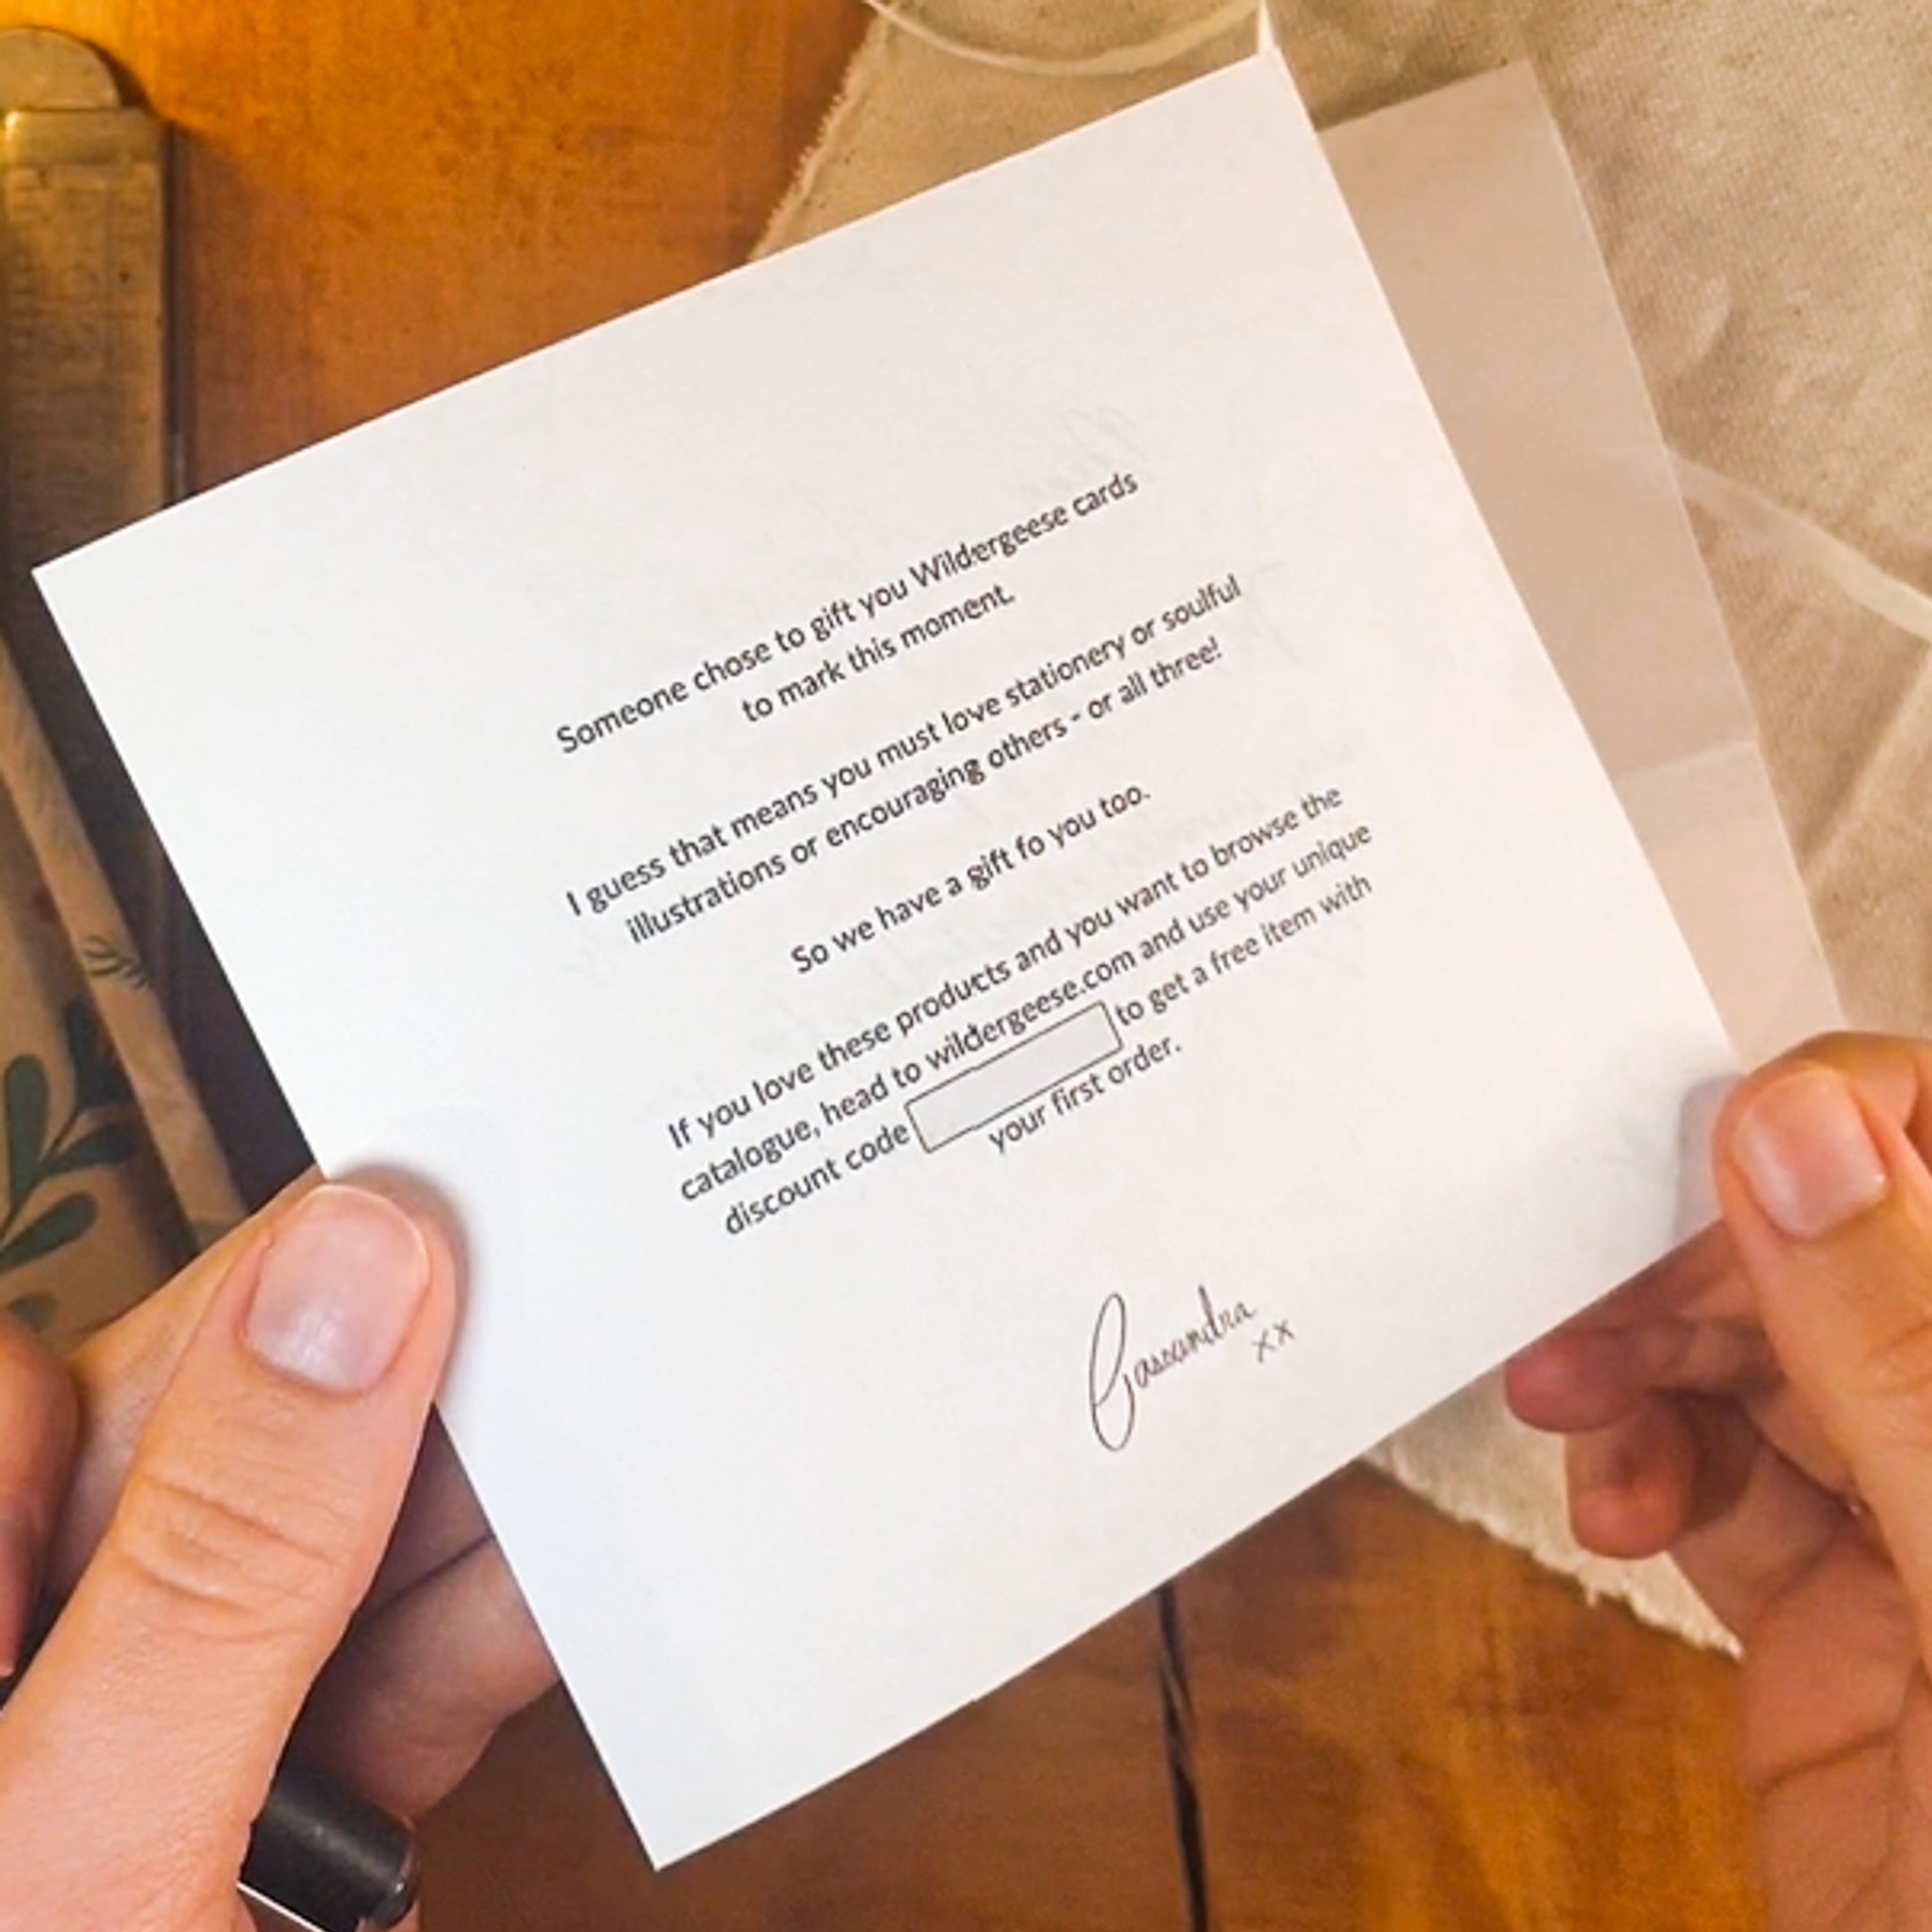 Someone chose to gift you Wildergeese cards
to mark this moment.
I guess that means you must love stationery or soulful
illustrations or encouraging others - or all three!
So we have a gift fo you too.
If you love these products and you want to browse the
catalogue, head to wildergeese.com and use your unique
discount code to get a free item with
your first order.
Cassandra
xx